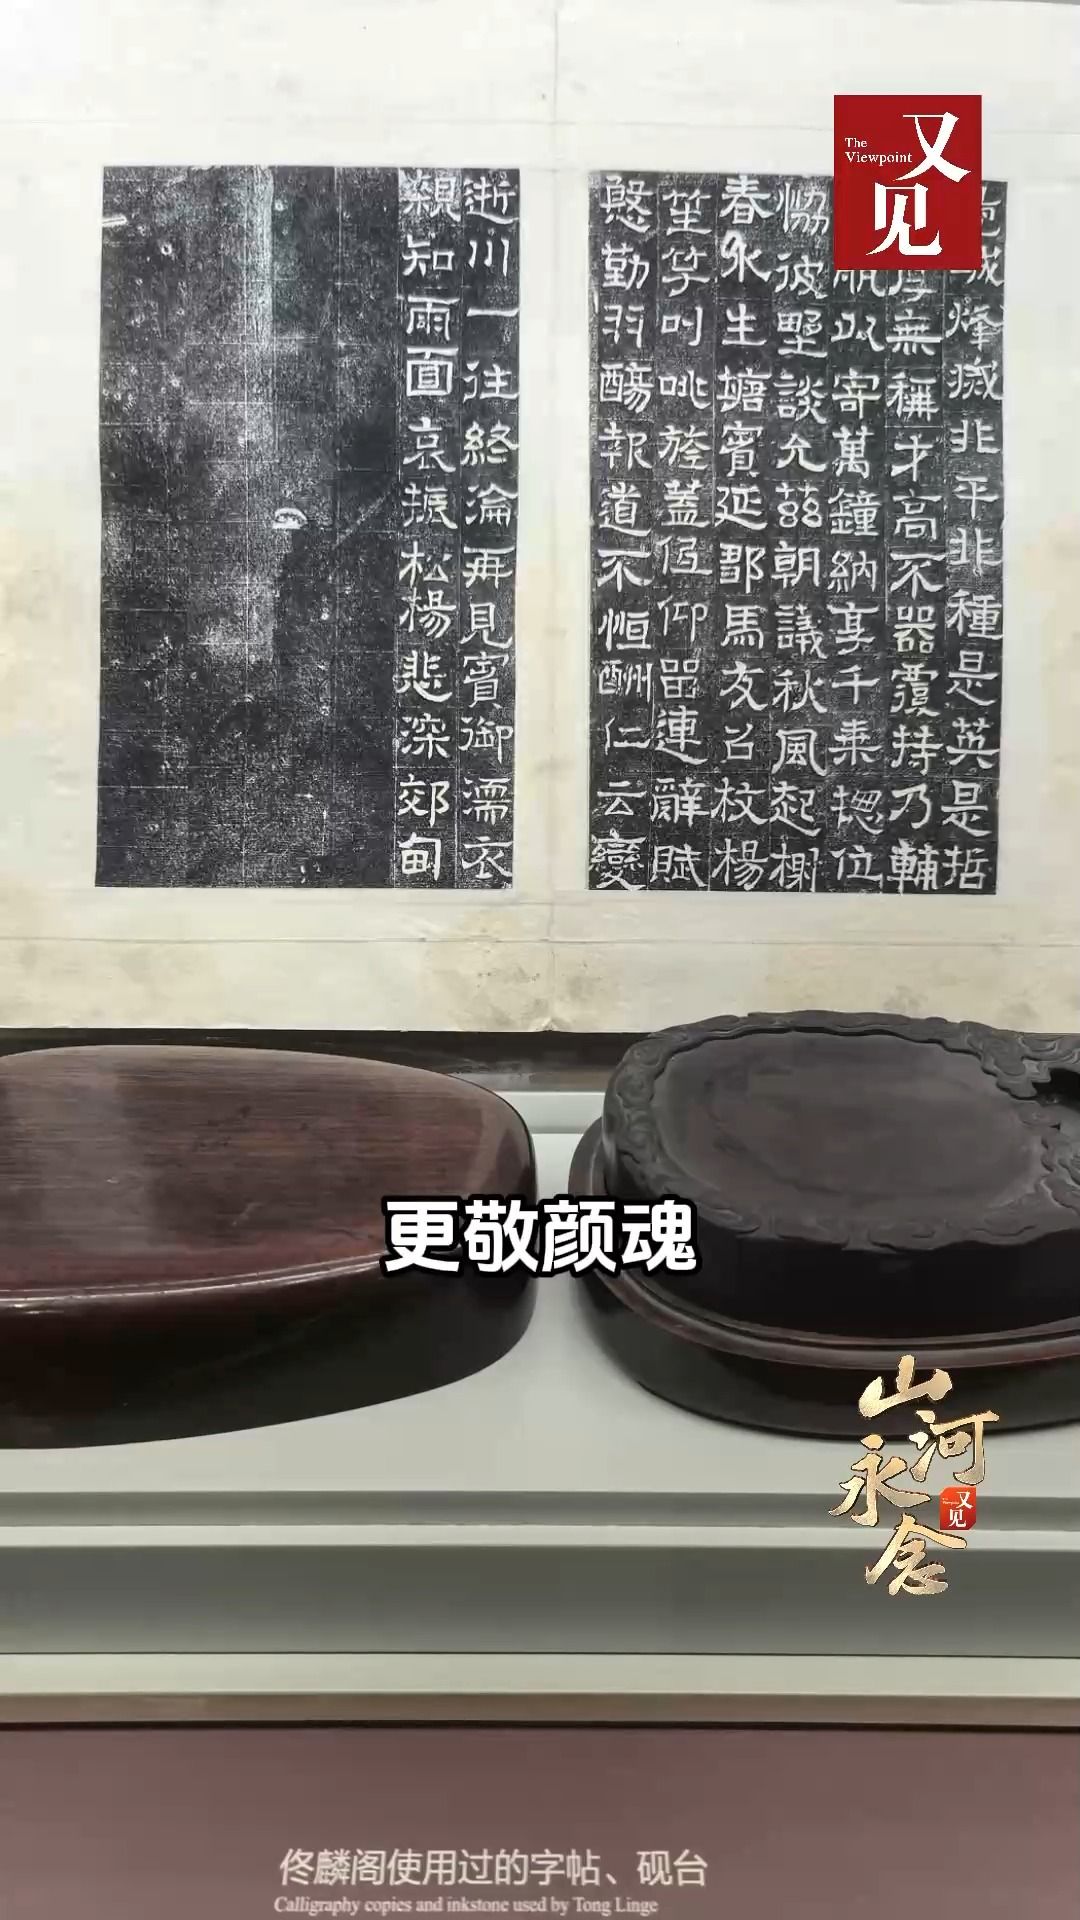 The
Viewpoint
又
见
城烽非平非種是英是哲
厚無稱才高不器覆持乃輔
以寄萬鐘納享千乘揔位
恊彼野談允茲朝議秋風起榭
春永生塘賓延鄒馬友召枚楊
笙竽叫咷旍蓋仰連辭賦
慇勤羽觴報道不恒酬仁云變
逝川一往終淪再見賓御濡衣
親知雨面哀振松楊悲深郊甸
更敬颜魂
山河
永念
又见
佟麟阁使用过的字帖、砚台
Calligraphy copies and inkstone used by Tong Linge